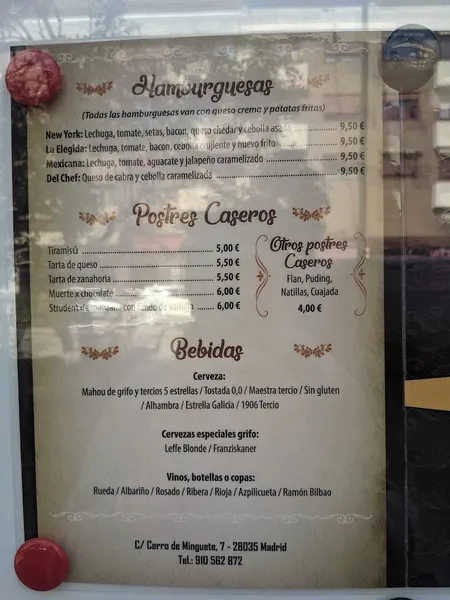 Hamburguesas
(Todas las hamburguesas van con queso crema y patatas fritas)
New York: Lechuga, tomate, setas, bacon, queso chedar y cebolla asada 9,50 €
La Elegida: Lechuga, tomate, bacon, cebolla crujiente y huevo frito 9,50 €
Mexicana: Lechuga, tomate, aguacate y jalapeño caramelizado 9,50 €
Del Chef: Queso de cabra y cebolla caramelizada 9,50 €
Postres Caseros
Tiramisú 5,00 €
Tarta de queso 5,50 €
Tarta de zanahoria 5,50 €
Muerte x chocolate 6,00 €
Strudent de manzana con fondo de vainilla 6,00 €
Otros postres
Caseros
Flan, Puding,
Natillas, Cuajada
4,00 €
Bebidas
Cerveza:
Mahou de grifo y tercios 5 estrellas / Tostada 0,0 / Maestra tercio / Sin gluten
/ Alhambra / Estrella Galicia / 1906 Tercio
Cervezas especiales grifo:
Leffe Blonde / Franziskaner
Vinos, botellas o copas:
Rueda / Albariño / Rosado / Ribera / Rioja / Azpilicueta / Ramón Bilbao
C/ Cerro de Minguete, 7 - 28035 Madrid
Tel.: 910 562 872